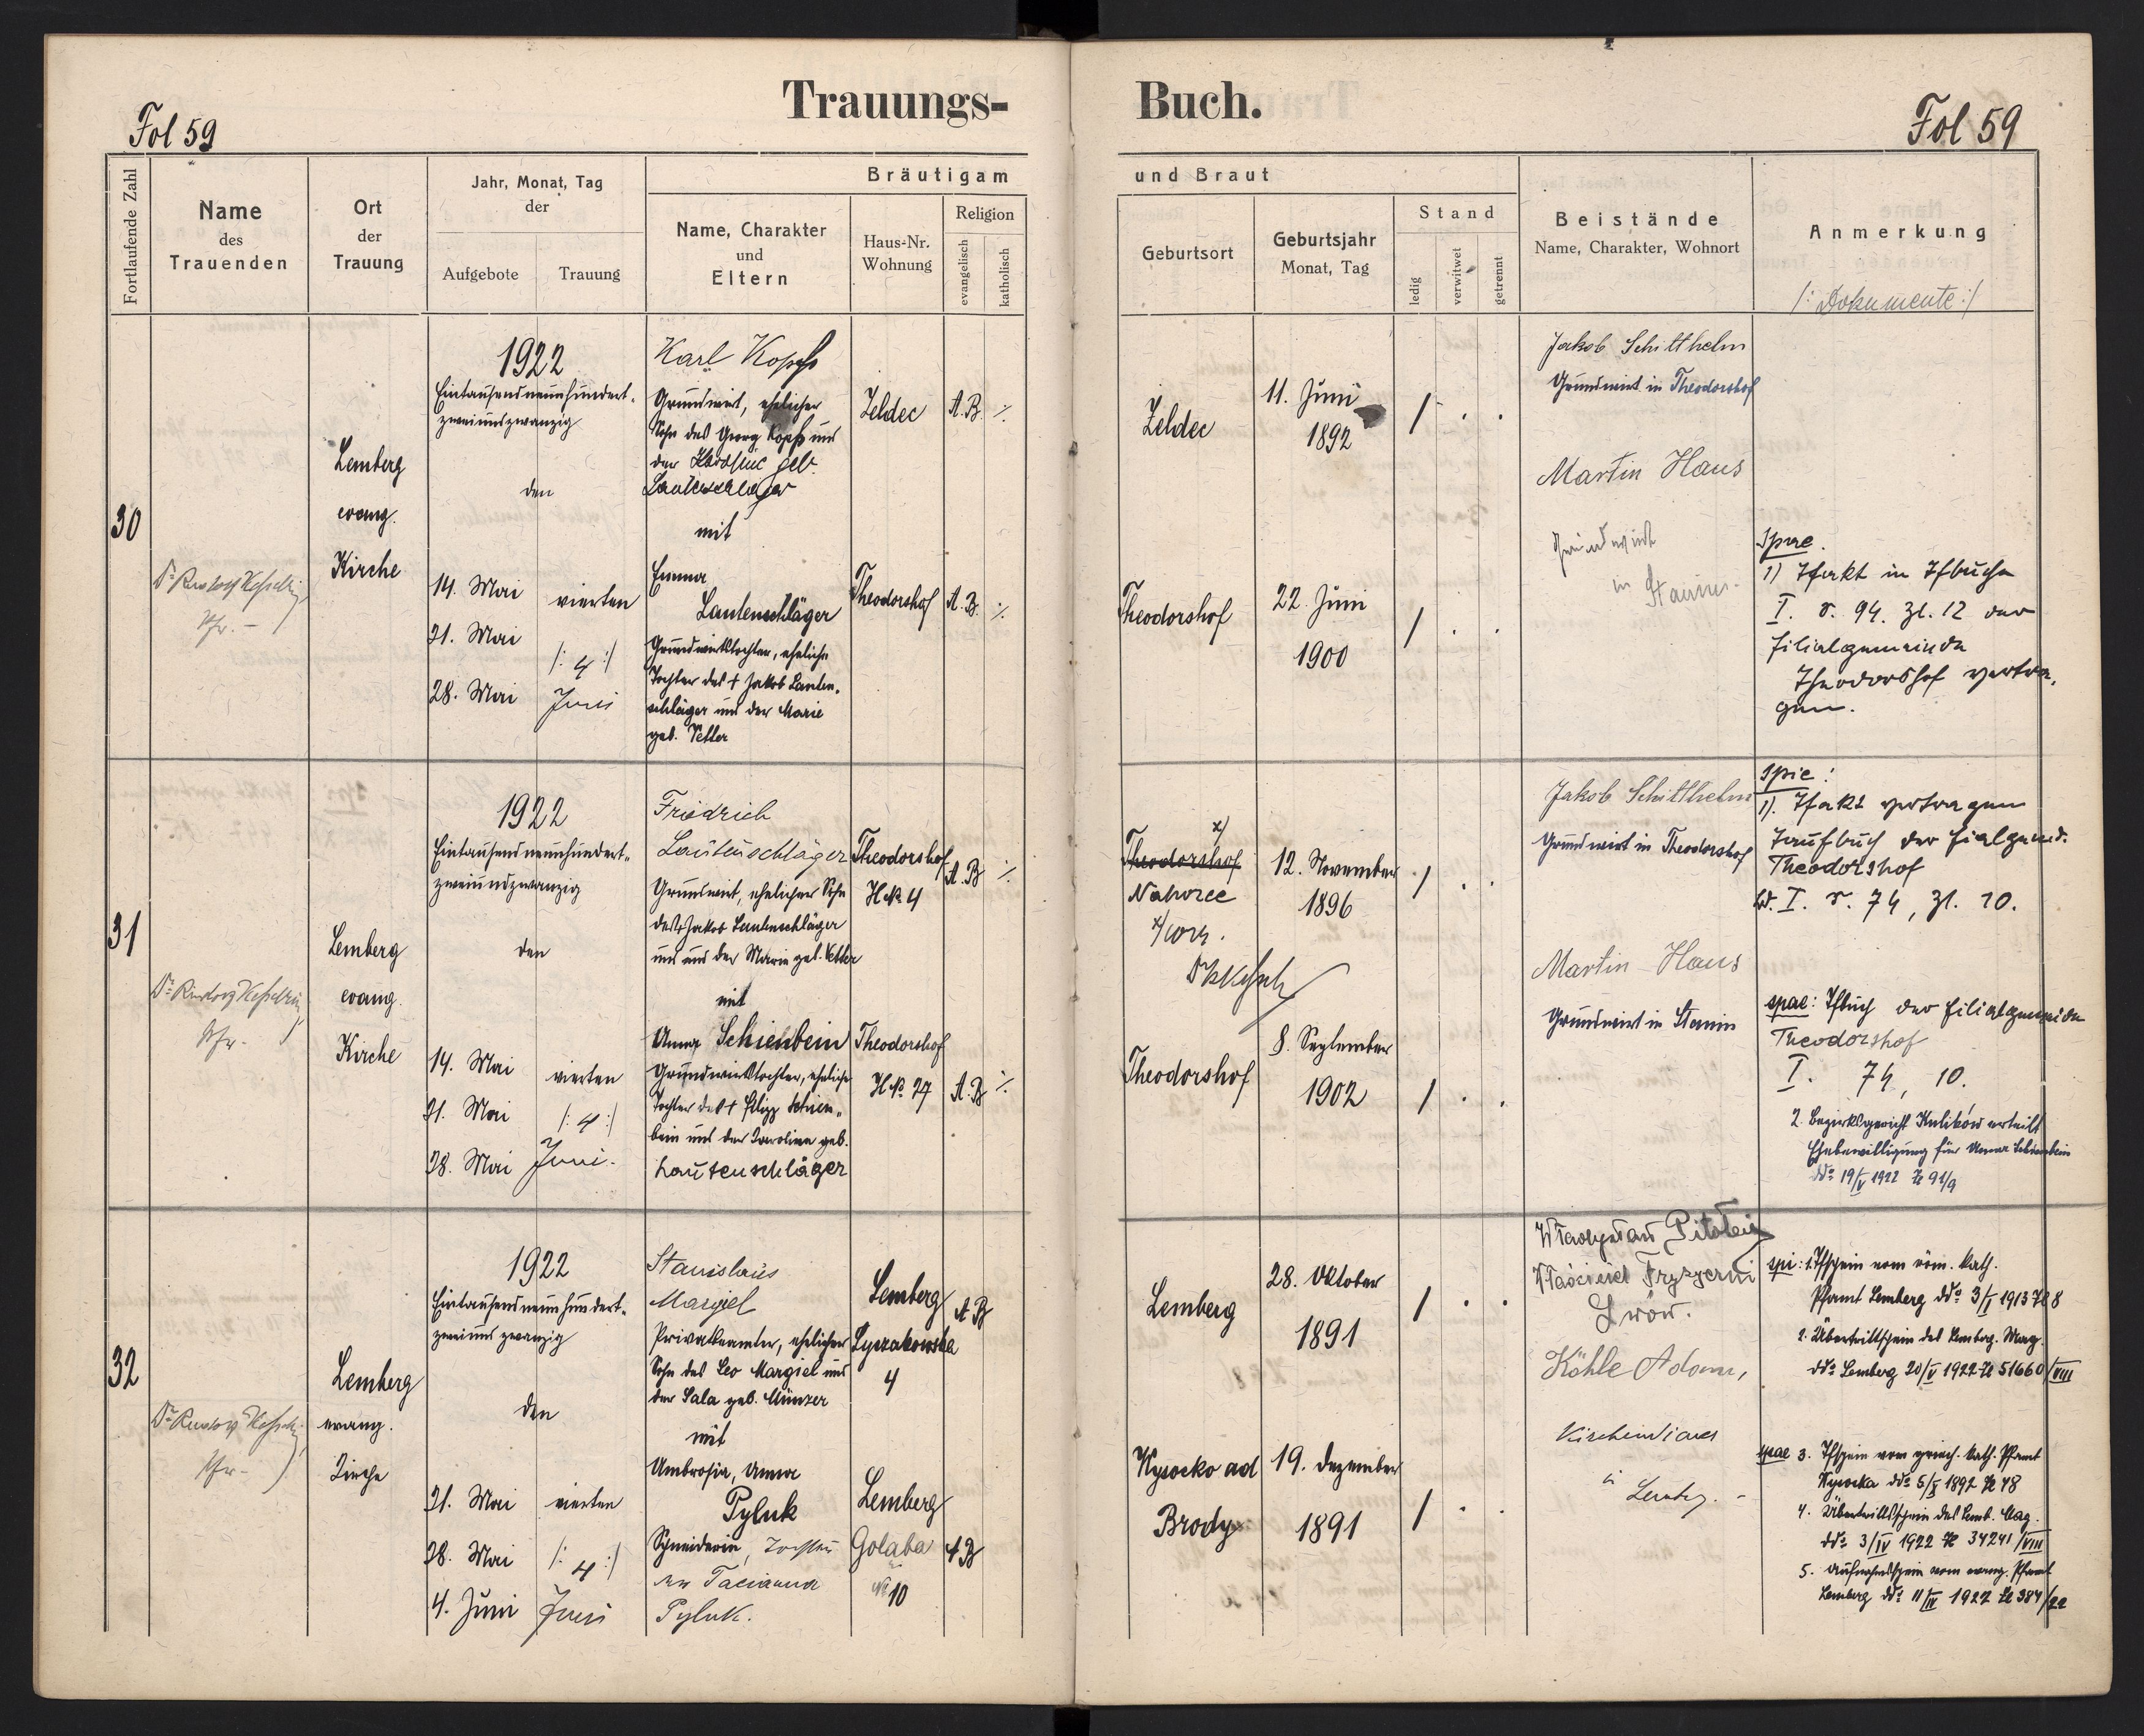 Trauungs-
Buch.
Fol 59
Fol 59
Fortlaufende Zahl
Name
des
Trauenden
Ort
der
Trauung
Jahr, Monat, Tag
der
Aufgebote
Trauung
Bräutigam
Name, Charakter
und
Eltern
Haus-Nr.
Wohnung
Religion
evangelisch
katholisch
und Braut
Geburtsort
Geburtsjahr
Monat, Tag
Stand
ledig
verwitwet
getrennt
Beistände
Name, Charakter, Wohnort
Anmerkung
/: Dokumente :/
30
Dr Rudolf Kesselring
Pfr. -
Lemberg
evang.
Kirche
1922
Eintausendneunhundert-
zweiundzwanzig
den
14. Mai
21. Mai
28. Mai
vierten
/: 4 :/
Juni
Karl Kopf
Grundwirt, ehelicher
Sohn des Georg Kopf und
der geb.
Lautenschläger
mit
Emma
Lautenschläger
Grundwirtstochter, eheliche
Tochter des † Jakob Lauten-
schläger und der Marie
geb. Vetter
Zeldec
A.B. ⁒
Theodorshof
A.B. ⁒
Zeldec
11. Juni
1892
/ . .
Theodorshof
22. Juni
1900
/ . .
Jakob Schitthelm
Grundwirt in Theodorshof
Martin Haus
Grundwirt
in Stanin.
Spae.
1) Tfakt in Tfbuche
I. S. 94. Zl. 12 der
Filialgemeinde
Theodorshof vertra-
gen.
31
Dr Rudolf Kesselring
Pfr. -
Lemberg
evang.
Kirche
1922
Eintausendneunhundert-
zweiundzwanzig
den
14. Mai
21. Mai
28. Mai
vierten
/: 4 :/
Juni.
Friedrich
Lautenschläger
Grundwirt, ehelicher Sohn
des † Jakob Lautenschläger
und der Marie geb. Vetter
mit
Anna Schienbein
Grundwirtstochter, eheliche
Tochter des † Filipp Schien-
bein und der Karoline geb.
Lautenschläger
Theodorshof
H № 4
A.B ⁒
Theodorshof
H № 27
A.B ⁒
x/
Theodorshof
Nahorce
x/ corr.
12. November
1896
/ . .
Theodorshof
8. September
1902
/ . .
Jakob Schitthelm
Grundwirt in Theodorshof
Martin Haus
Grundwirt in Stanin
Spie:
1). Tfakt vertragen
Taufbuch der Fialgemd.
Theodorshof
Bd. I. S. 74, Zl. 10.
spae: Tfbuch der Filialgemeinde
Theodorshof
I. 74, 10.
2. Bezirksgericht Kulików erteilt
Ehebewilligung für Anna Schienbein
ddo 19/V 1922 Zl 91/9
32
Dr Rudolf Kesselring
Pfr -
Lemberg
evang.
Kirche
1922
Eintausendneunhundert-
zweiundzwanzig
den
21. Mai
28. Mai
4. Juni
vierten
/: 4 :/
Juni
Stanislaus
Margiel
Privatbeamter, ehelicher
Sohn des Leo Margiel und
der Sala geb. Münzer
mit
Ambrosia, Anna
Pyluk
Schneiderin, Tochter
der Tacianna
Pyluk.
Lemberg
Lyczakowska
4
A B
Lemberg
Golaba
№ 10
A B
Lemberg
28. Oktober
1891
/ . .
Wysocko ad
Brody
19. Dezember
1891
/ . .
Właściciel Fryzjerni
Lwów.
Köhle Adam,
Kirchendiener
in Lemberg. -
spi: 1. Tfschein vom röm. kath.
Pfarramt Lemberg ddo 3/I 1913 Zl 8
2. Übertrittschein des Lemberg. Mag.
ddo Lemberg 20/V 1922 Zl 51660/VIII
spae 3. Tfschein vom griech. kath. Pfarramt
Wysocka ddo 5/X 1892 Zl 48
4. Übertrittsschein des Lemb. Mag.
ddo 3/IV 1922 Zl 34241/VIII
5. Aufnahmsschein vom evang. Pfarramt
Lemberg ddo 11/IV 1922 Zl 384/22